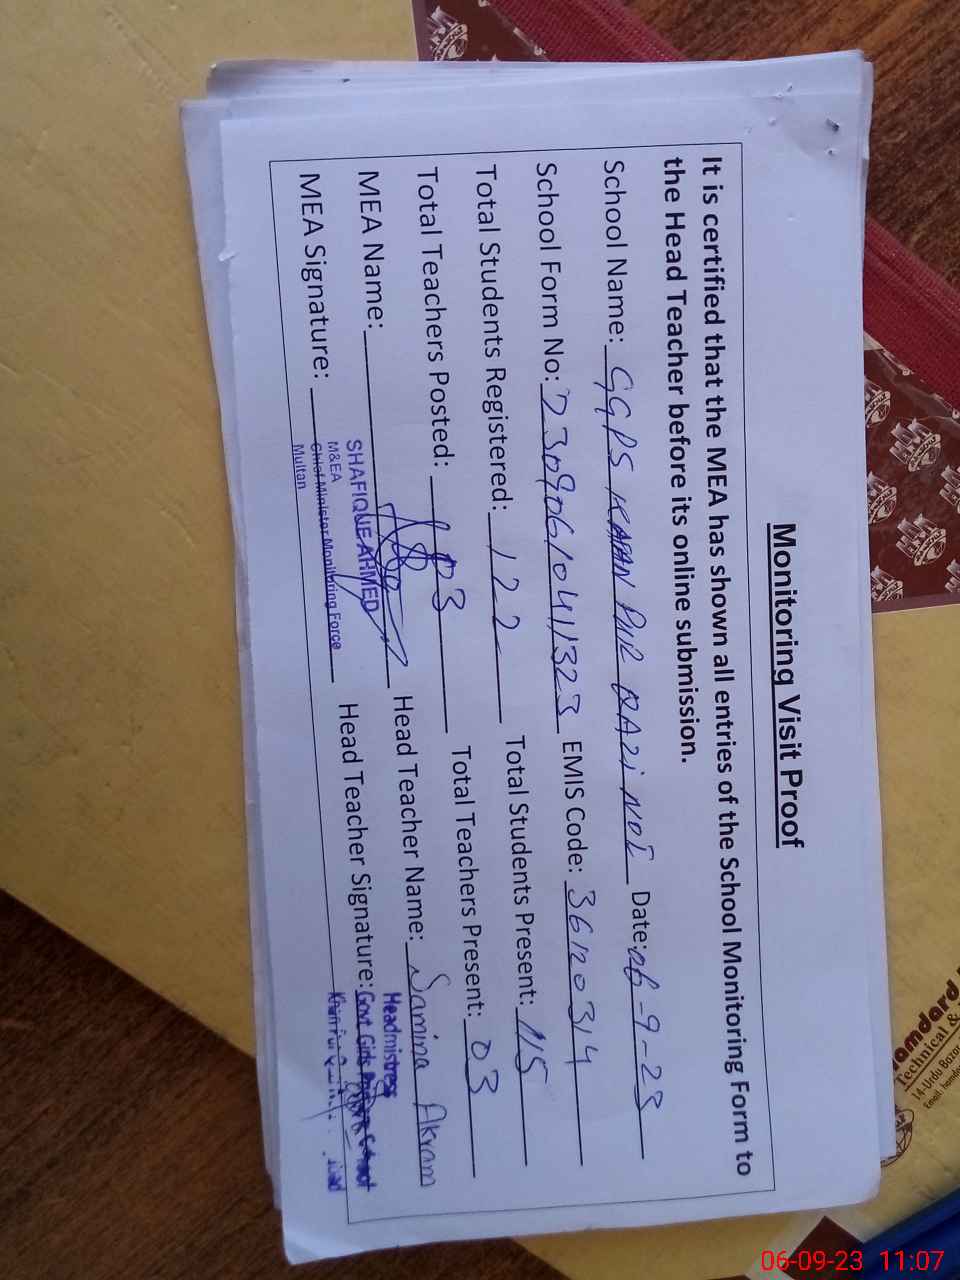 Monitoring Visit Proof
It is certified that the MEA has shown all entries of the School Monitoring Form to
the Head Teacher before its online submission.
School Name: GGPS KHAN PUR QAZI NO1 Date: 06-9-23
School Form No: 23090610411323 EMIS Code: 36120314
Total Students Registered: 122 Total Students Present: 115
Total Teachers Posted: 03 Total Teachers Present: 03
MEA Name: Head Teacher Name: Samina Akram
SHAFIQUE AHMED
M&EA
Chief Minister Monitoring Force
Multan
MEA Signature: Head Teacher Signature:
Headmistress
Govt Girls
Khan Pur
Hamdard
Technical &
14-Urdu Bazar
Email:
06-09-23 11:07